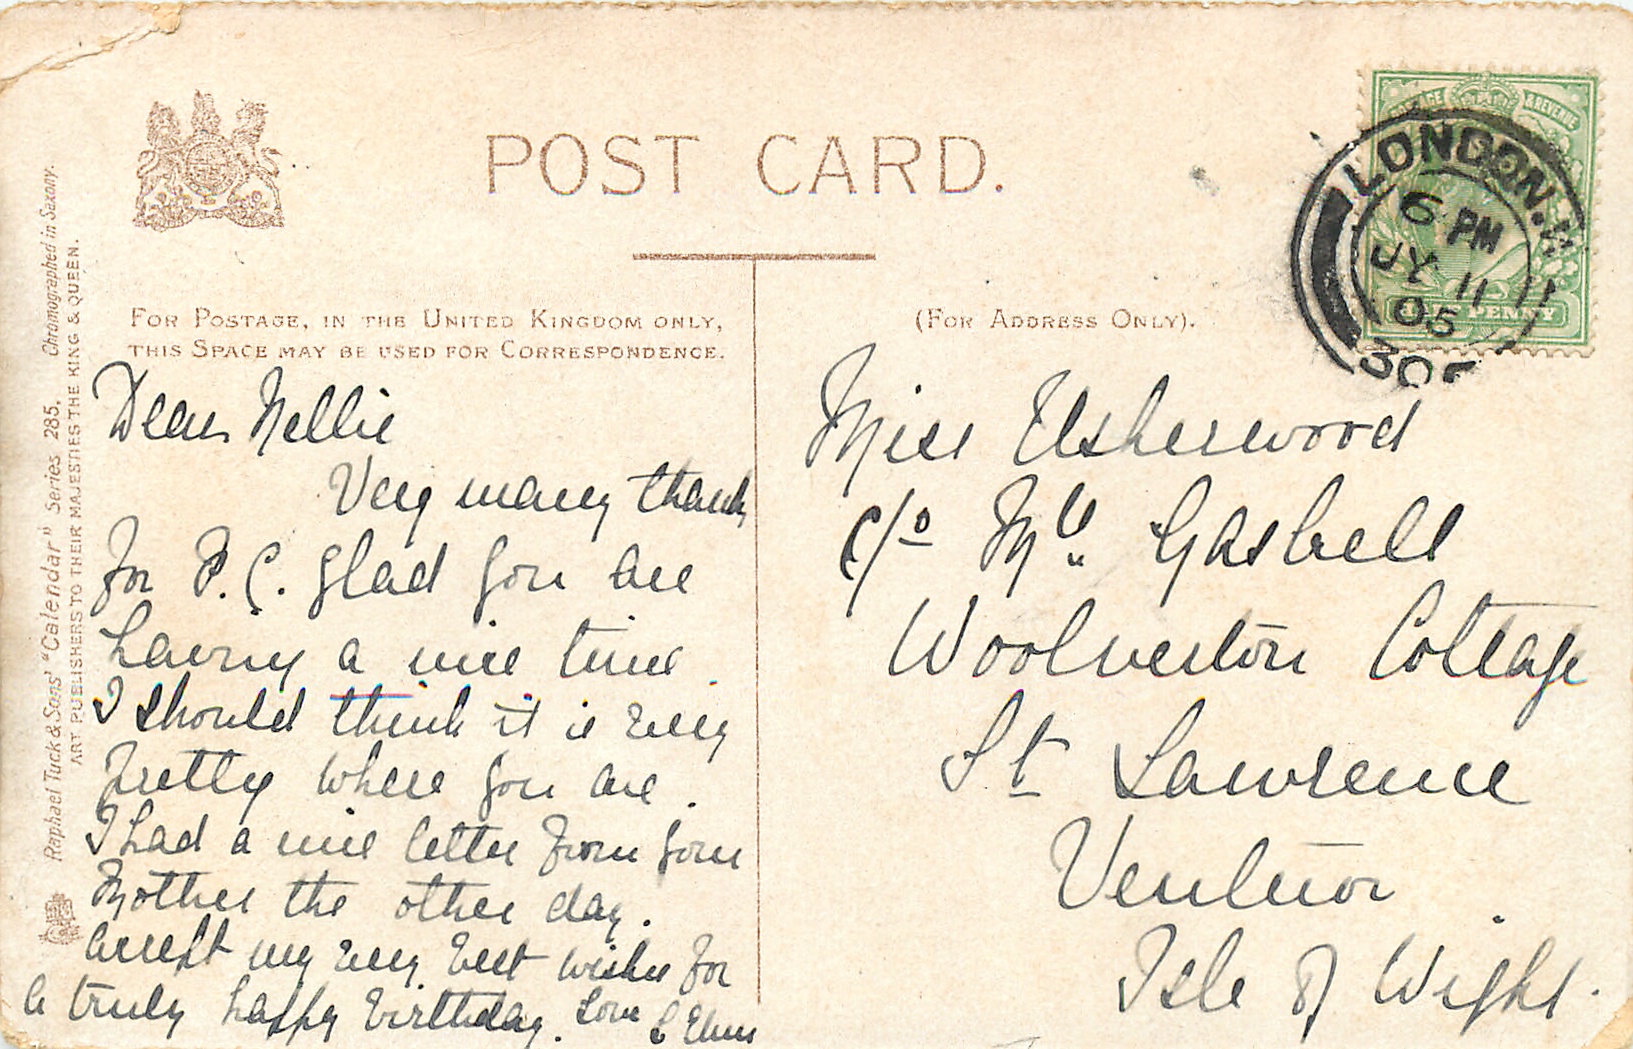 POST CARD.
FOR POSTAGE, IN THE UNITED KINGDOM ONLY,
THIS SPACE MAY BE USED FOR CORRESPONDENCE.
(FOR ADDRESS ONLY).
Raphael Tuck & Sons' "Calendar" Series 285. Chromographed in Saxony.
ART PUBLISHERS TO THEIR MAJESTIES THE KING & QUEEN.
POSTAGE & REVENUE
HALF PENNY
LONDON. W
6 PM
JY 11
05
Dear Nellie
Very many thanks
for P.C. glad you are
having a nice time.
I should think it is very
pretty where you are.
I had a nice letter from your
Mother the other day.
Accept my very best wishes for
a truly happy birthday. Love
Miss Usherwood
c/o Mrs.
Woolverton Cottage
St Lawrence
Ventnor
Isle of Wight.